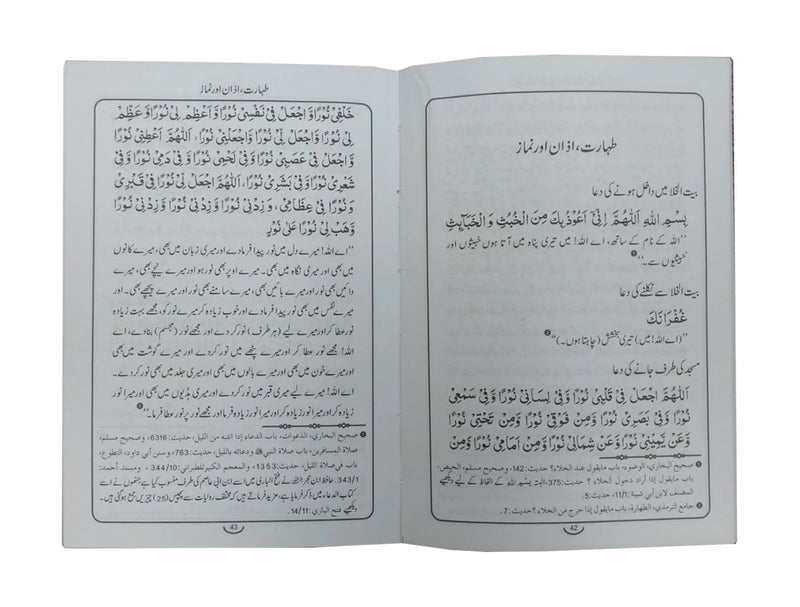 طہارت، اذان اور نماز
بیت الخلا میں داخل ہونے کی دعا
بِسْمِ اللهِ اَللّٰهُمَّ اِنِّیْۤ اَعُوْذُ بِكَ مِنَ الْخُبُثِ وَ الْخَبَآئِثِ
’’اللہ کے نام کے ساتھ، اے اللہ! میں تیری پناہ میں آتا ہوں خبیثوں اور
خبیثیوں سے۔‘‘❶
بیت الخلا سے نکلنے کی دعا
غُفْرَانَكَ
’’(اے اللہ! میں) تیری بخشش (چاہتا ہوں۔)‘‘❷
مسجد کی طرف جانے کی دعا
اَللّٰهُمَّ اجْعَلْ فِیْ قَلْبِیْ نُوْرًا وَّ فِیْ لِسَانِیْ نُوْرًا وَّ فِیْ سَمْعِیْ
نُوْرًا وَّ فِیْ بَصَرِیْ نُوْرًا وَّ مِنْ فَوْقِیْ نُوْرًا وَّ مِنْ تَحْتِیْ نُوْرًا
وَّ عَنْ یَّمِیْنِیْ نُوْرًا وَّ عَنْ شِمَالِیْ نُوْرًا وَّ مِنْ اَمَامِیْ نُوْرًا وَّ مِنْ
❶ صحیح البخاري، الوضوء، باب مایقول عند الخلاء؟ حدیث: 142، وصحیح مسلم، الحیض،
باب مایقول إذا أراد دخول الخلاء؟ حدیث: 375، البتہ بسم اللہ کے الفاظ کے لیے دیکھیے
المصنف لابن أبي شیبة: 11/1، حدیث: 5.
❷ جامع الترمذي، الطهارة، باب مایقول إذا خرج من الخلاء؟ حدیث: 7.
42
طہارت، اذان اور نماز
خَلْفِیْ نُوْرًا وَّ اجْعَلْ فِیْ نَفْسِیْ نُوْرًا وَّ اَعْظِمْ لِیْ نُوْرًا وَّ عَظِّمْ
لِیْ نُوْرًا وَّ اجْعَلْ لِّیْ نُوْرًا وَّ اجْعَلْنِیْ نُوْرًا، اَللّٰهُمَّ اَعْطِنِیْ نُوْرًا
وَّ اجْعَلْ فِیْ عَصَبِیْ نُوْرًا وَّ فِیْ لَحْمِیْ نُوْرًا وَّ فِیْ دَمِیْ نُوْرًا وَّ فِیْ
شَعْرِیْ نُوْرًا وَّ فِیْ بَشَرِیْ نُوْرًا، اَللّٰهُمَّ اجْعَلْ لِّیْ نُوْرًا فِیْ قَبْرِیْ
وَ نُوْرًا فِیْ عِظَامِیْ، وَ زِدْنِیْ نُوْرًا وَّ زِدْنِیْ نُوْرًا وَّ زِدْنِیْ نُوْرًا
وَّ هَبْ لِیْ نُوْرًا عَلٰی نُوْرٍ
’’اے اللہ! میرے دل میں نور پیدا فرما دے اور میری زبان میں بھی، میرے کانوں
میں بھی اور میری نگاہ میں بھی۔ میرے اوپر بھی نور ہو اور میرے نیچے بھی، میرے
دائیں بھی نور اور میرے بائیں بھی، میرے سامنے بھی نور اور میرے پیچھے بھی۔ اور
میرے نفس میں بھی نور پیدا فرما دے اور خوب زیادہ کر میرے نور کو، مجھے بہت زیادہ
نور عطا کر اور میرے لیے (ہر طرف) نور کر دے اور مجھے نور (مجسم) بنا دے، اے
اللہ! مجھے نور عطا کر اور میرے پٹھے میں نور کر دے اور میرے گوشت میں بھی
اور میرے خون میں بھی اور میرے بالوں میں بھی اور میری جلد میں بھی نور کر دے۔
اے اللہ! میرے لیے میری قبر میں نور کر دے اور میری ہڈیوں میں بھی اور میرا نور
زیادہ کر اور میرا نور زیادہ کر اور میرا نور زیادہ فرما اور مجھے نور پر نور عطا فرما۔‘‘❶
❶ صحیح البخاري، الدعوات، باب الدعاء إذا انتبه من اللیل، حدیث: 6316، وصحیح مسلم،
صلاة المسافرین، باب صلاة النبي ﷺ ودعائه باللیل، حدیث: 763، وسنن أبي داود، التطوع،
باب في صلاة اللیل، حدیث: 1353، والمعجم الکبیر للطبراني: 344/10، ومسند أحمد:
343/1. حافظ ابن حجر رحمہ اللہ نے فتح الباری میں اسے ابن ابی عاصم کی طرف منسوب کیا ہے جنھوں نے اسے
کتاب الدعاء میں ذکر فرمایا ہے، مزید فرماتے ہیں کہ مختلف روایات سے پچیس (25) چیزیں جمع ہوگئی ہیں۔
دیکھیے فتح الباري: 14/11.
43